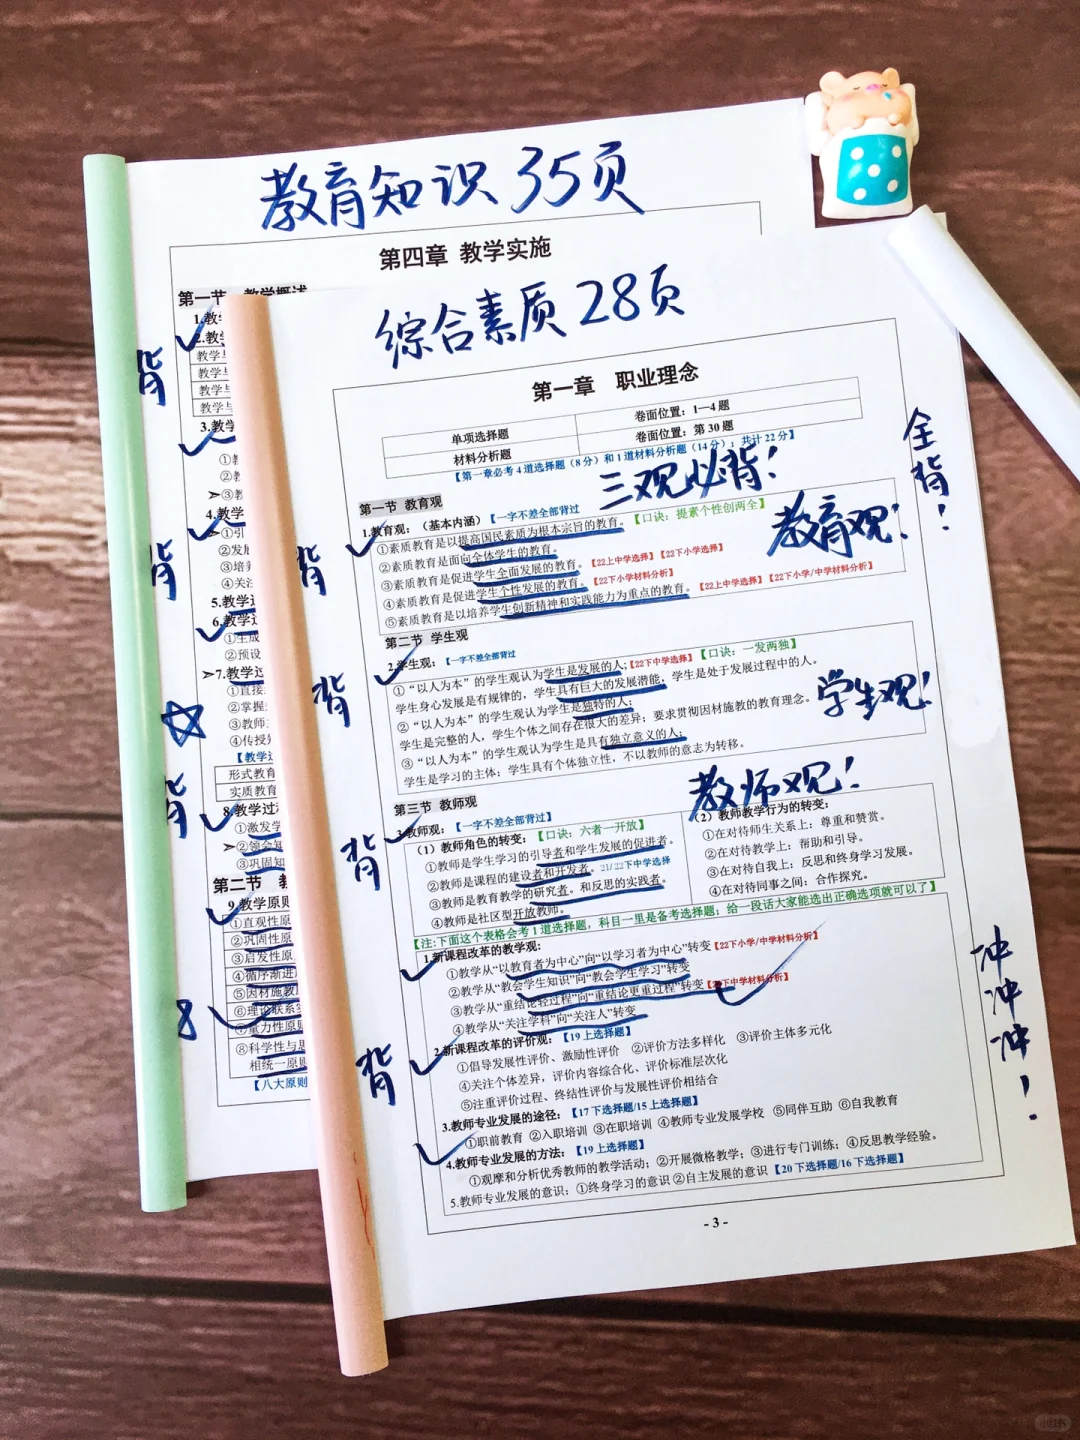 教育知识 35页
第四章 教学实施
第一节 教学概述
1.教
2.教
教学与
教学与
教学与
教学与
3.教学
①
②
③教
4.教学
①引
②发展
③培养
④关注
5.教学过
6.教学过
①生成
②预设
7.教学过
①直接
②掌握
③教师
④传授知
【教学过
形式教育
实质教育
8.教学过程
①激发学
②领会知
③巩固知
第二节 教
9.教学原则
①直观性原
②巩固性原
③启发性原
④循序渐进原
⑤因材施教原
⑥理论联系实
⑦量力性原则
⑧科学性与思
相统一原则
【八大原则
背
背
背
8
综合素质 28页
第一章 职业理念
单项选择题 卷面位置：1—4 题
材料分析题 卷面位置：第 30 题
【第一章必考 4 道选择题（8 分）和 1 道材料分析题（14 分）；共计 22 分】
三观必背！
全背！
第一节 教育观
1.教育观：（基本内涵）【一字不差全部背过
①素质教育是以提高国民素质为根本宗旨的教育。【口诀：提素个性创两全】
②素质教育是面向全体学生的教育。
③素质教育是促进学生全面发展的教育。【22上中学选择】【22下小学选择】
④素质教育是促进学生个性发展的教育。【22下小学材料分析】
⑤素质教育是以培养学生创新精神和实践能力为重点的教育。【22上中学选择】【22下小学/中学材料分析】
教育观！
背
第二节 学生观
2.学生观：【一字不差全部背过
①“以人为本”的学生观认为学生是发展的人;【22下中学选择】【口诀：一发两独】
学生身心发展是有规律的，学生具有巨大的发展潜能，学生是处于发展过程中的人。
②“以人为本”的学生观认为学生是独特的人；
学生是完整的人，学生个体之间存在很大的差异；要求贯彻因材施教的教育理念。
③“以人为本”的学生观认为学生是具有独立意义的人；
学生是学习的主体；学生具有个体独立性，不以教师的意志为转移。
学生观！
背
第三节 教师观
教师观！
3.教师观：【一字不差全部背过】
（1）教师角色的转变：【口诀：六者一开放】
①教师是学生学习的引导者和学生发展的促进者。
②教师是课程的建设者和开发者。21/22下中学选择
③教师是教育教学的研究者。和反思的实践者。
④教师是社区型开放教师。
（2）教师教学行为的转变：
①在对待师生关系上：尊重和赞赏。
②在对待教学上：帮助和引导。
③在对待自我上：反思和终身学习发展。
④在对待同事之间：合作探究。
背
【注:下面这个表格会考 1 道选择题，科目一里是备考选择题；给一段话大家能选出正确选项就可以了】
1.新课程改革的教学观：
①教学从“以教育者为中心”向“以学习者为中心”转变【22下小学/中学材料分析】
②教学从“教会学生知识”向“教会学生学习”转变
③教学从“重结论轻过程”向“重结论更重过程”转变【22下中学材料分析】
④教学从“关注学科”向“关注人”转变
2.新课程改革的评价观：【19 上选择题】
①倡导发展性评价、激励性评价 ②评价方法多样化 ③评价主体多元化
④关注个体差异，评价内容综合化、评价标准层次化
⑤注重评价过程、终结性评价与发展性评价相结合
背
3.教师专业发展的途径：【17 下选择题/15 上选择题】
①职前教育 ②入职培训 ③在职培训 ④教师专业发展学校 ⑤同伴互助 ⑥自我教育
4.教师专业发展的方法：【19 上选择题】
①观摩和分析优秀教师的教学活动；②开展微格教学；③进行专门训练；④反思教学经验。
5.教师专业发展的意识：①终身学习的意识 ②自主发展的意识【20 下选择题/16 下选择题】
冲冲冲！
- 3 -